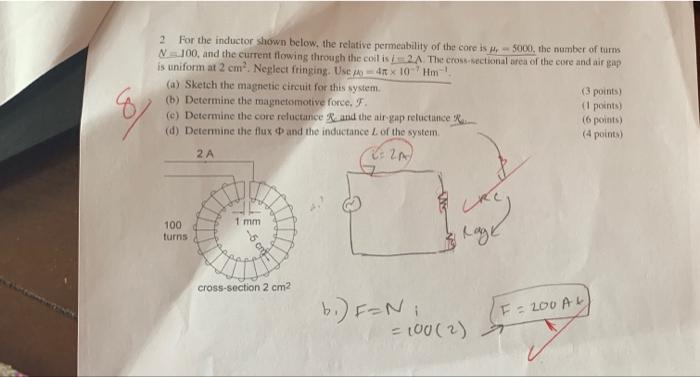 2 For the inductor shown below, the relative permeability of the core is μr = 5000, the number of turns
N = 100, and the current flowing through the coil is i = 2 A. The cross-sectional area of the core and air gap
is uniform at 2 cm². Neglect fringing. Use μ0 = 4π × 10⁻⁷ Hm⁻¹.
(a) Sketch the magnetic circuit for this system. (3 points)
(b) Determine the magnetomotive force, F. (1 points)
(c) Determine the core reluctance Rc and the air-gap reluctance (6 points)
(d) Determine the flux Φ and the inductance L of the system. (4 points)
8
2 A
i = 2A
1 mm
100
turns
cross-section 2 cm²
Rc
Rag
b.) F = N i
= 100(2)
F = 200 At